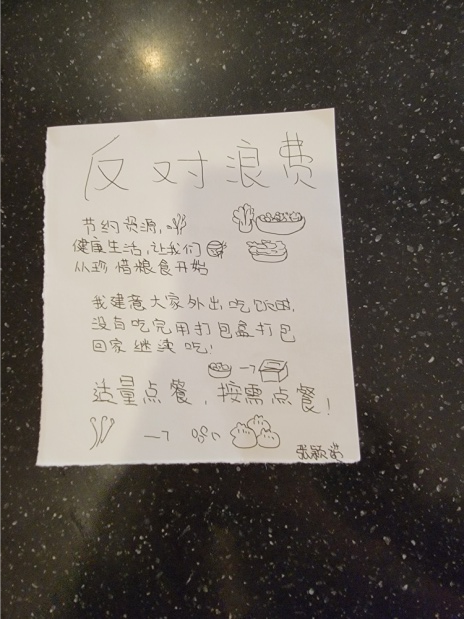 反对浪费
节约资源,
健康生活,让我们
从珍惜粮食开始
我建意大家外出吃饭时,
没有吃完用打包盒打包
回家继续吃!
适量点餐,按需点餐!
张颖